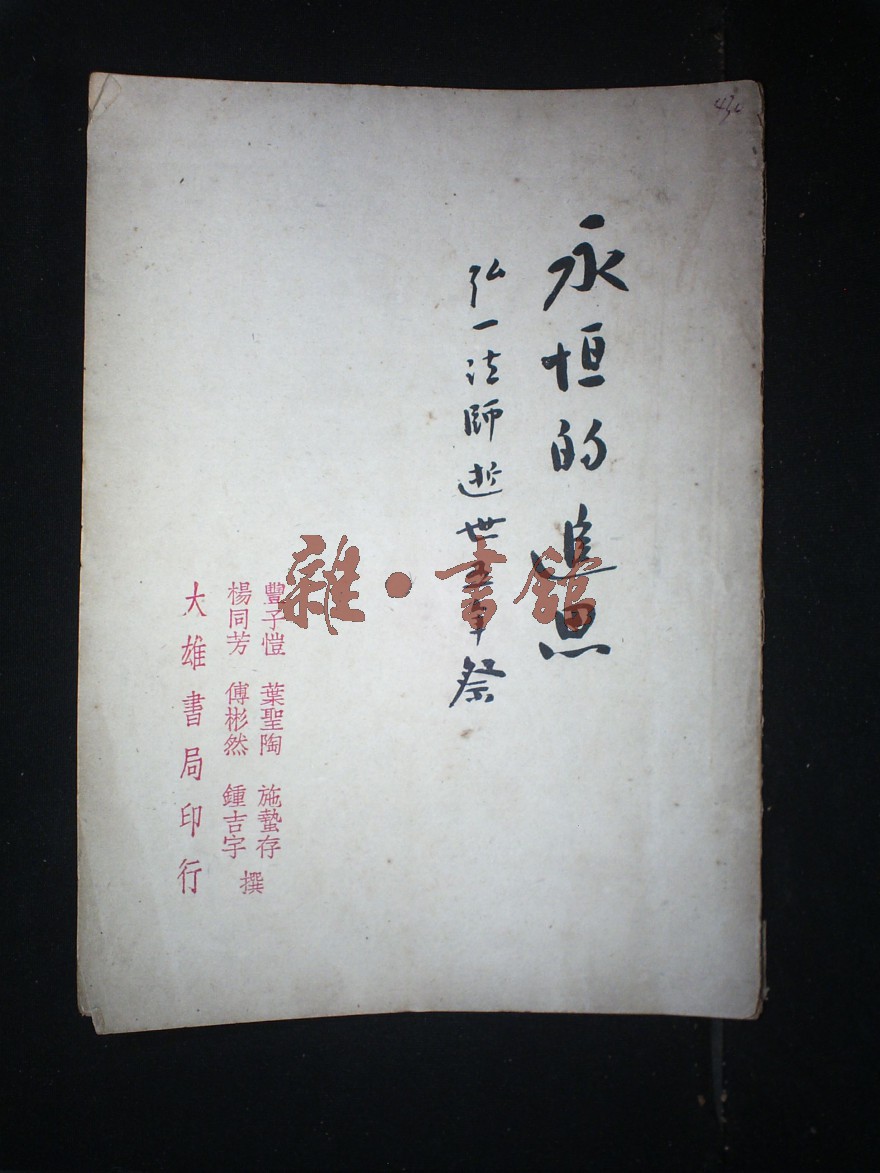 永恒的追思
弘一法師逝世五年祭
豐子愷 葉聖陶 施蟄存
楊同芳 傅彬然 鍾吉宇 撰
大雄書局印行
雜·書館